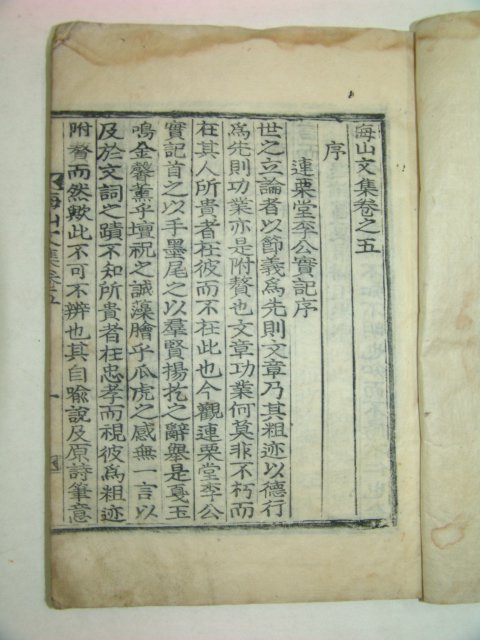 海山文集卷之五
序
連栗堂李公實記序
世之立論者以節義爲先則文章乃其粗迹以德行
爲先則功業亦是附贅也文章功業何莫非不朽而
在其人所貴者在彼而不在此也今觀連栗堂李公
實記首之以手墨尾之以羣賢揚扢之辭舉是戛玉
鳴金馨薰乎壇祝之誠藻膾乎瓜虎之感無一言以
及於文詞之蹟不知所貴者在忠孝而視彼爲粗迹
附贅而然歟此不可不辨也其自喩說及原詩筆意
海山文集卷五
一